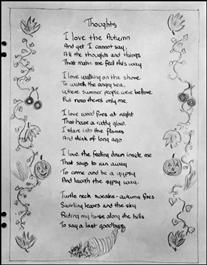 Thoughts
I love the Autumn
And yet I cannot say,
All the thoughts and things
That make me feel this way
I love walking on the shore
To watch the angry sea,
Where summer people were before
But now there's only me.
I love wood fires at night
That have a ruddy glow
I stare into the flames
And think of long ago
I love the feeling down inside me
That says to run away
To come and be a gypsy
And laugh the gypsy way.
Turtle neck sweater - autumn fires
Swirling leaves and the sky
Riding my horse along the hills
To say a last goodbye.